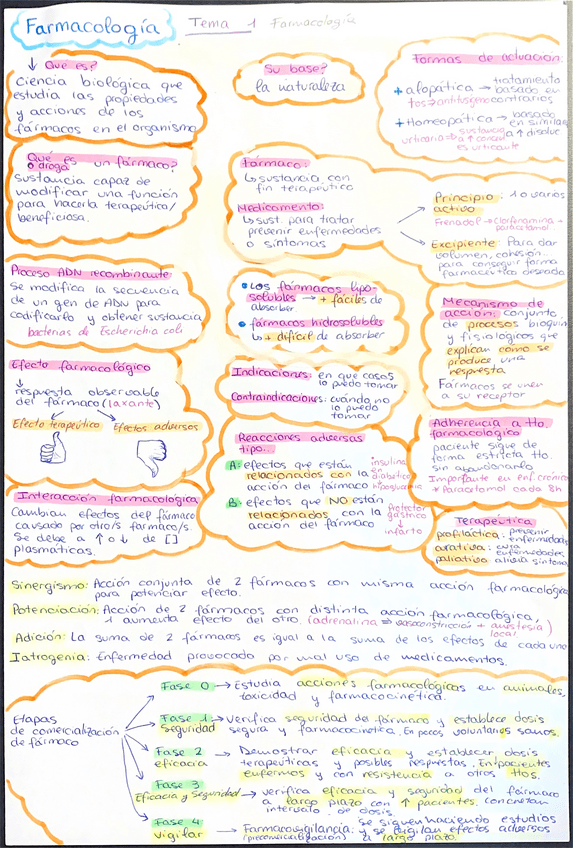 Farmacología
Tema 1 Farmacología
↓ Qué es?
Ciencia biológica que
estudia las propiedades
y acciones de los
fármacos en el organismo
Su base?
la naturaleza
Formas de actuación:
+ alopática → tratamiento
basado en
contrarios
tos → antitusígeno
+ Homeopática → basado
en similar
sustancia
↑ disolve
urticaria ↑ concen
es urticante
Qué es un fármaco?
o droga
Sustancia capaz de
modificar una función
para hacerla terapeútica/
beneficiosa.
Fármaco:
↳ sustancia con
fin terapeútico
Medicamento:
↳ sust. para tratar
prevenir enfermedades
o síntomas
Principio: 1 o varios
activo
Frenadol → Clorfenamina +
paracetamol...
Excipiente: Para dar
volumen, cohesión...
para conseguir forma
farmaceútica deseada
Proceso ADN recombinante:
Se modifica la secuencia
de un gen de ADN para
codificarlo y obtener sustancia
bacterias de Escherichia coli
• Los fármacos lipo-
solubles → + fáciles de
absorber.
• fármacos hidrosolubles
↳ + difícil de absorber
Mecanismo de
acción: conjunto
de procesos bioquím
y fisiológicos que
explican como se
produce una
respuesta.
Fármacos se unen
a su receptor
Efecto farmacológico
↓
respuesta observable
del fármaco (laxante)
Efecto terapeútico Efectos adversos
Indicaciones: en que casos
lo puedo tomar
Contraindicaciones: cuándo no
lo puedo
tomar
Reacciones adversas
tipo...
A: efectos que están
relacionados con la
acción del fármaco
insulina
en
diabético
hipoglucemia
B: efectos que NO están
relacionados con la
acción del fármaco
Protector
gástrico
↓
infarto
Adherencia a tto.
farmacológico
paciente sigue de
forma estricta tto.
sin abandonarlo
Importante en enf. crónica
+ Paracetamol cada 8h
Interacción farmacológica
Cambian efectos del fármaco
causado por otro/s fármaco/s.
Se debe a ↑ o ↓ de []
plasmáticas.
Terapeútica
profiláctica: prevenir
enfermedades
curativa: cura
enfermedades
paliativa: alivia síntomas
Sinergismo: Acción conjunta de 2 fármacos con misma acción farmacológica
para potenciar efecto.
Potenciación: Acción de 2 fármacos con distinta acción farmacológica,
1 aumenta efecto del otro. (adrenalina ⇒ vasoconstricción + anestesia)
local
Adición: La suma de 2 fármacos es igual a la suma de los efectos de cada uno
Iatrogenia: Enfermedad provocado por mal uso de medicamentos.
Etapas
de comercialización
de fármaco
Fase 0 → Estudia acciones farmacológicas en animales,
toxicidad y farmacocinética.
Fase 1 → Verifica seguridad de fármaco y establece dosis
Seguridad segura y farmacocinética. En pocos voluntarios sanos.
Fase 2 → Demostrar eficacia y establecer dosis
eficacia terapeúticas y posibles respuestas. En pacientes
enfermos y con resistencia a otros ttos.
Fase 3
Eficacia y Seguridad → verifica eficacia y seguridad del fármaco
a largo plazo con ↑ pacientes. Concretan
intervalo de dosis
Fase 4
Vigilar → Farmacovigilancia: se siguen haciendo estudios
(precomercialización) y se vigilan efectos adversos
a largo plazo.